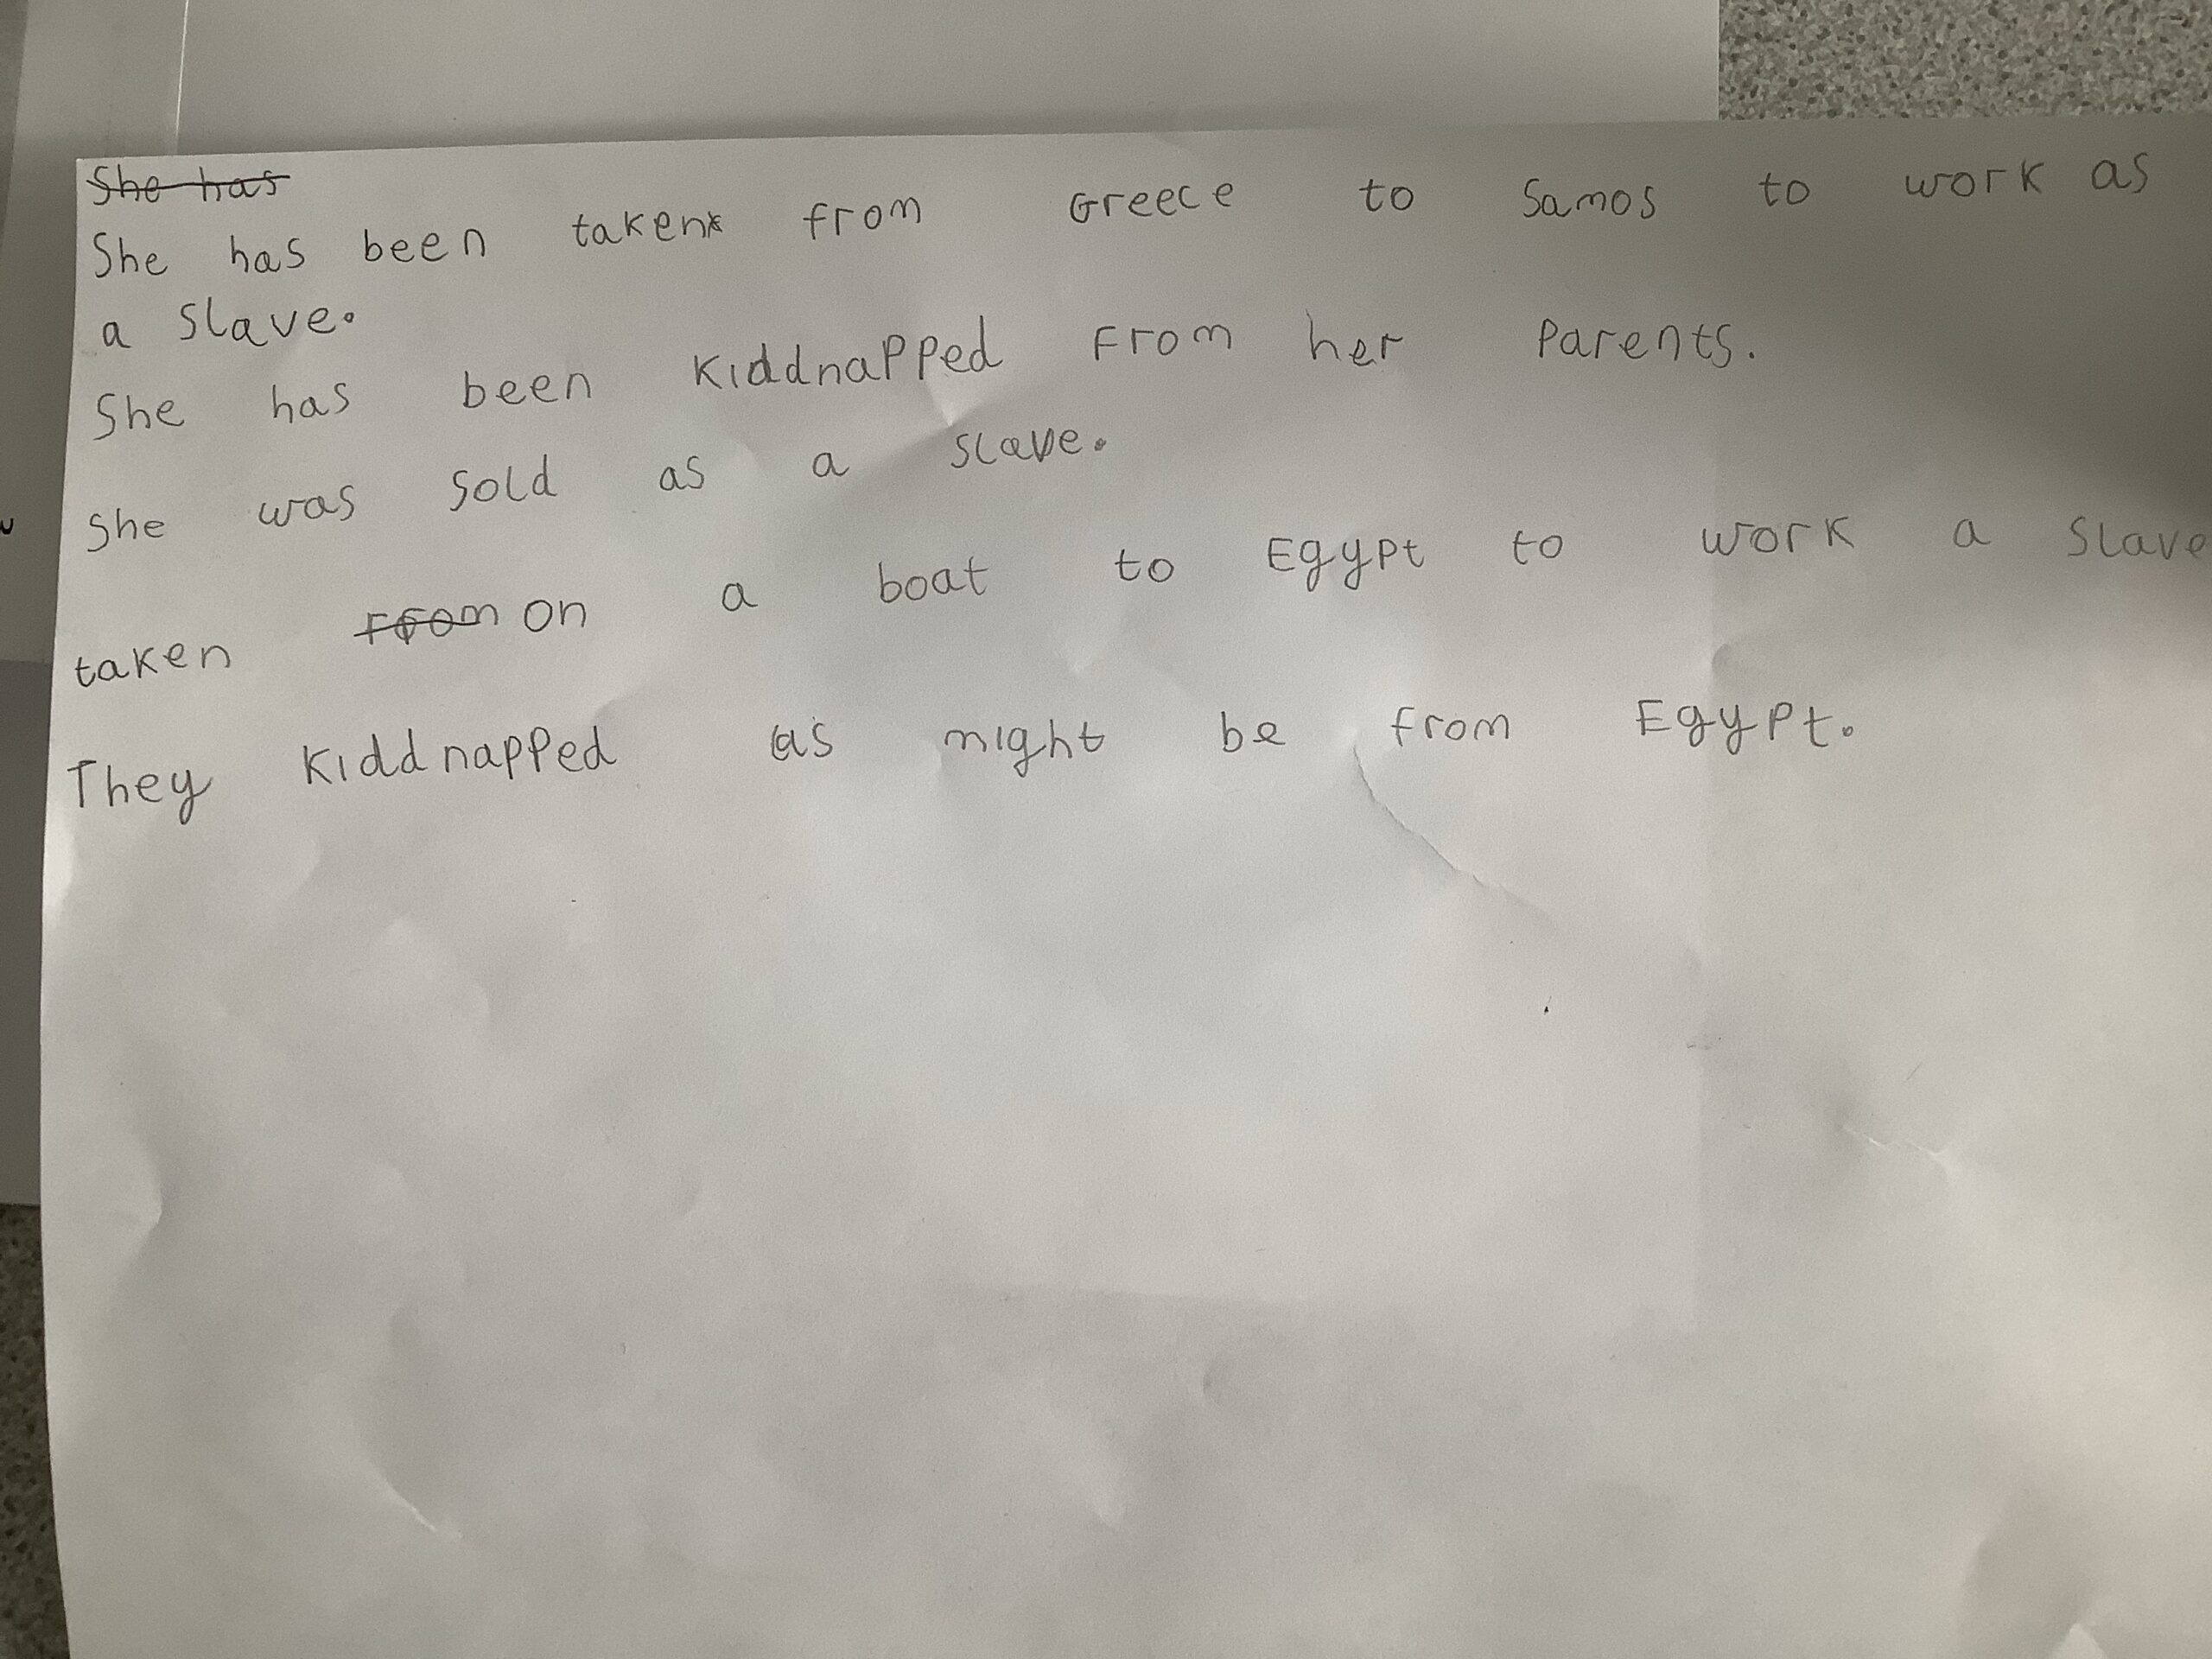 She has
She has been taken from Greece to Samos to work as
a slave.
She has been kiddnapped from her parents.
She was sold as a slave.
taken from on a boat to Egypt to work a slave
They kiddnapped as might be from Egypt.